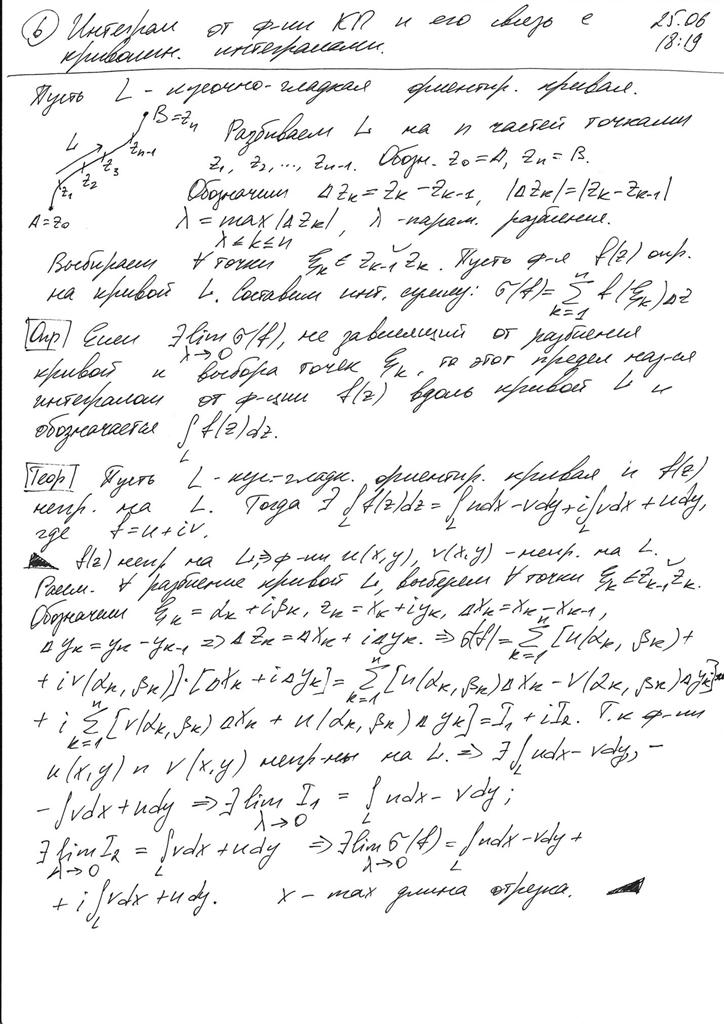 ⑥ Интеграл от ф-ии КП и его связь с 25.06
криволин. интегралами. 18:19
Пусть L - кусочно-гладкая ориентир. кривая.
B=zₙ
Разбиваем L на n частей точками
L zₙ₋₁ z₃ z₂ z₁
z₁, z₂, ..., zₙ₋₁. Обозн. z₀=A, zₙ=B.
Обозначим Δzₖ=zₖ-zₖ₋₁, |Δzₖ|=|zₖ-zₖ₋₁|
A=z₀ λ = max |Δzₖ|, λ -парам. разбиения.
1≤k≤n
Выбираем ∀ точки ξₖ∈ zₖ₋₁zₖ. Пусть ф-я f(z) опр.
на кривой L. Составим инт. сумму: σ(f)=∑ₖ₌₁ⁿ f(ξₖ)Δz
Опр Если ∃ lim σ(f), не зависящий от разбиения
λ→0
кривой и выбора точек ξₖ, то этот предел наз-ся
интегралом от ф-ции f(z) вдоль кривой L и
обозначается ∫_L f(z)dz.
Теор Пусть L - кус-гладк. ориентир. кривая и f(z)
непр. на L. Тогда ∃ ∫_L f(z)dz = ∫_L udx-vdy+i∫_L vdx+udy,
где f=u+iv.
◣ f(z) непр на L,⇒ ф-ии u(x,y), v(x,y) -непр. на L.
Расм. ∀ разбиение кривой L, выберем ∀ точки ξₖ∈zₖ₋₁zₖ.
Обозначим ξₖ = αₖ+iβₖ, zₖ=xₖ+iyₖ, Δxₖ=xₖ-xₖ₋₁,
Δyₖ=yₖ-yₖ₋₁ ⇒ Δzₖ=Δxₖ+iΔyₖ. ⇒ σ(f)=∑ₖ₌₁ⁿ [u(αₖ, βₖ)+
+iv(αₖ, βₖ)]·[Δxₖ+iΔyₖ]=∑ₖ₌₁ⁿ [u(αₖ,βₖ)Δxₖ-v(αₖ,βₖ)Δyₖ]+
+i ∑ₖ₌₁ⁿ [v(αₖ,βₖ)Δxₖ+u(αₖ,βₖ)Δyₖ]=I₁+iI₂. Т.к ф-ии
u(x,y) и v(x,y) непр-ны на L. ⇒ ∃ ∫_L udx-vdy, -
-∫vdx+udy ⇒ ∃ lim I₁ = ∫_L udx-vdy;
λ→0
∃ lim I₂ = ∫_L vdx+udy ⇒ ∃ lim σ(f)=∫_L udx-vdy+
λ→0 λ→0
+i∫_L vdx+udy. x - max длина отрезка. ◢